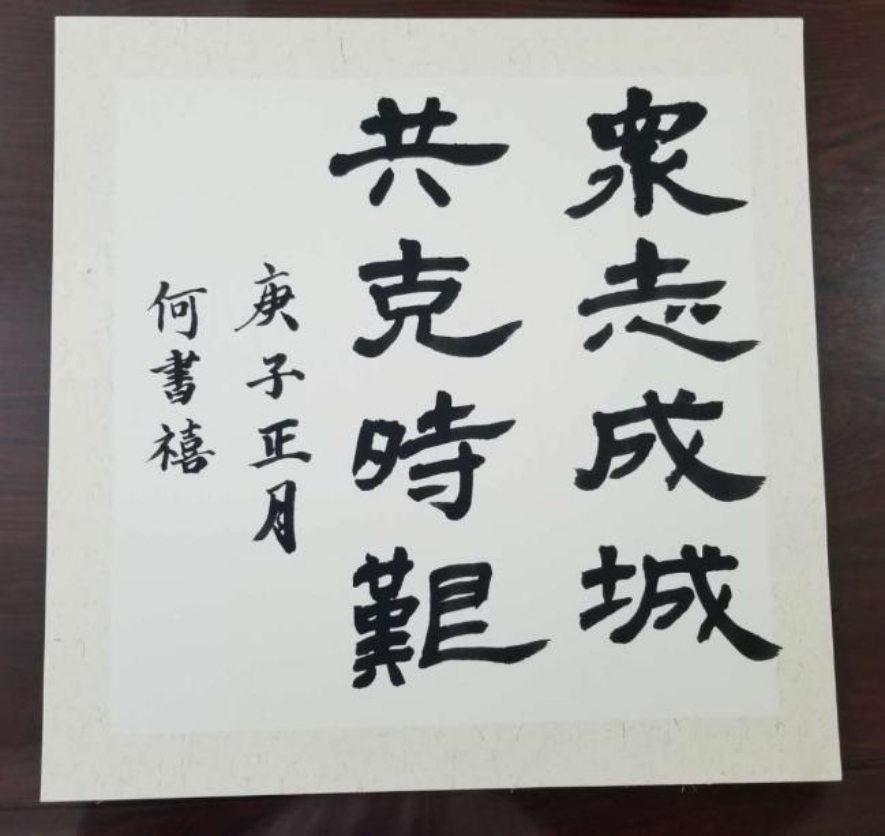 眾志成城
共克時艱
庚子正月
何書禧